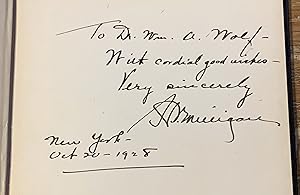 To Dr. Wm. A. Wolf -
With cordial good wishes -
Very sincerely
Milligan
New York -
Oct 20 - 1928